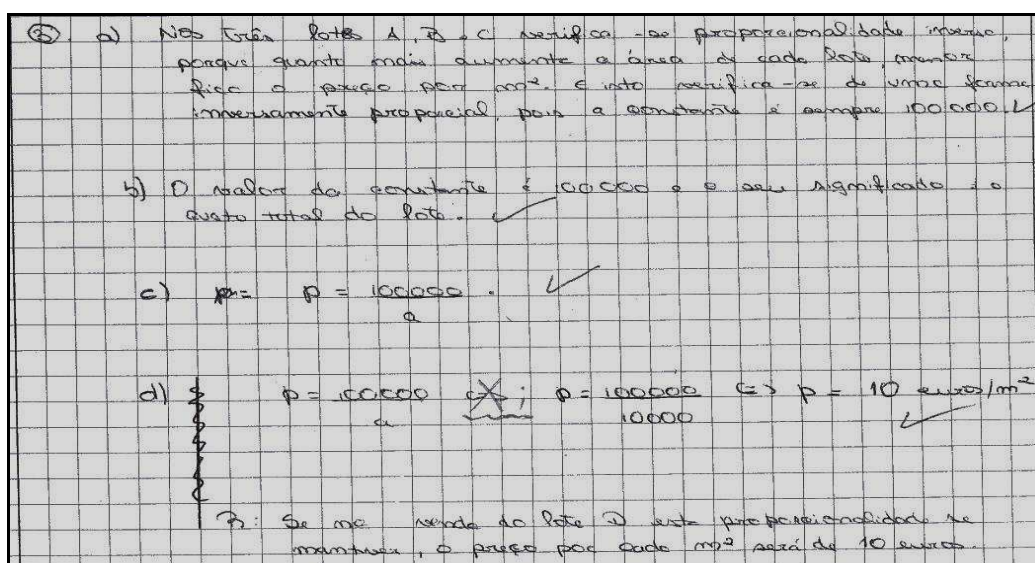 ③ a) Nos três lotes A, B, C verifica-se proporcionalidade inversa,
porque quanto mais aumenta a área de cada lote, menor
fica o preço por m². E isto verifica-se de uma forma
inversamente proporcial, pois a constante é sempre 100 000.
b) O valor da constante é 100 000 e o seu significado é o
custo total do lote.
c) p = 100000 / a.
d) p = 100000 / a ; p = 100000 / 10000 <=> p = 10 euros/m²
R: Se na venda do lote D esta proporcionalidade se
mantiver, o preço por cada m² será de 10 euros.